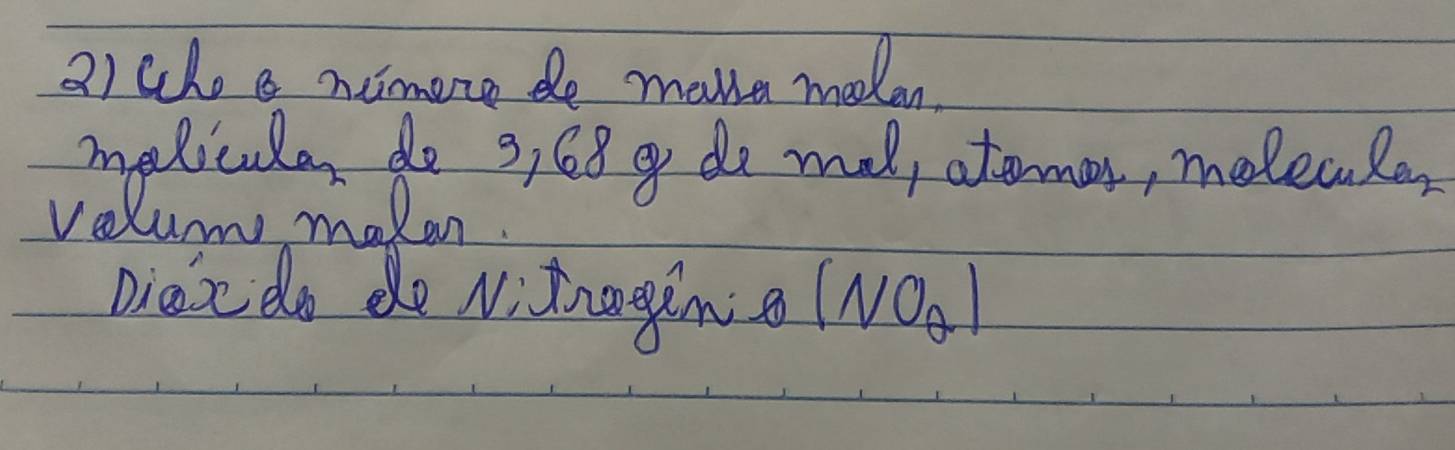 2) Ache o número de massa molar.
molécular de 3,68 g de mol, atomos, molecular
Volume molar.
Dióxido de Nitrogênio (NO2)